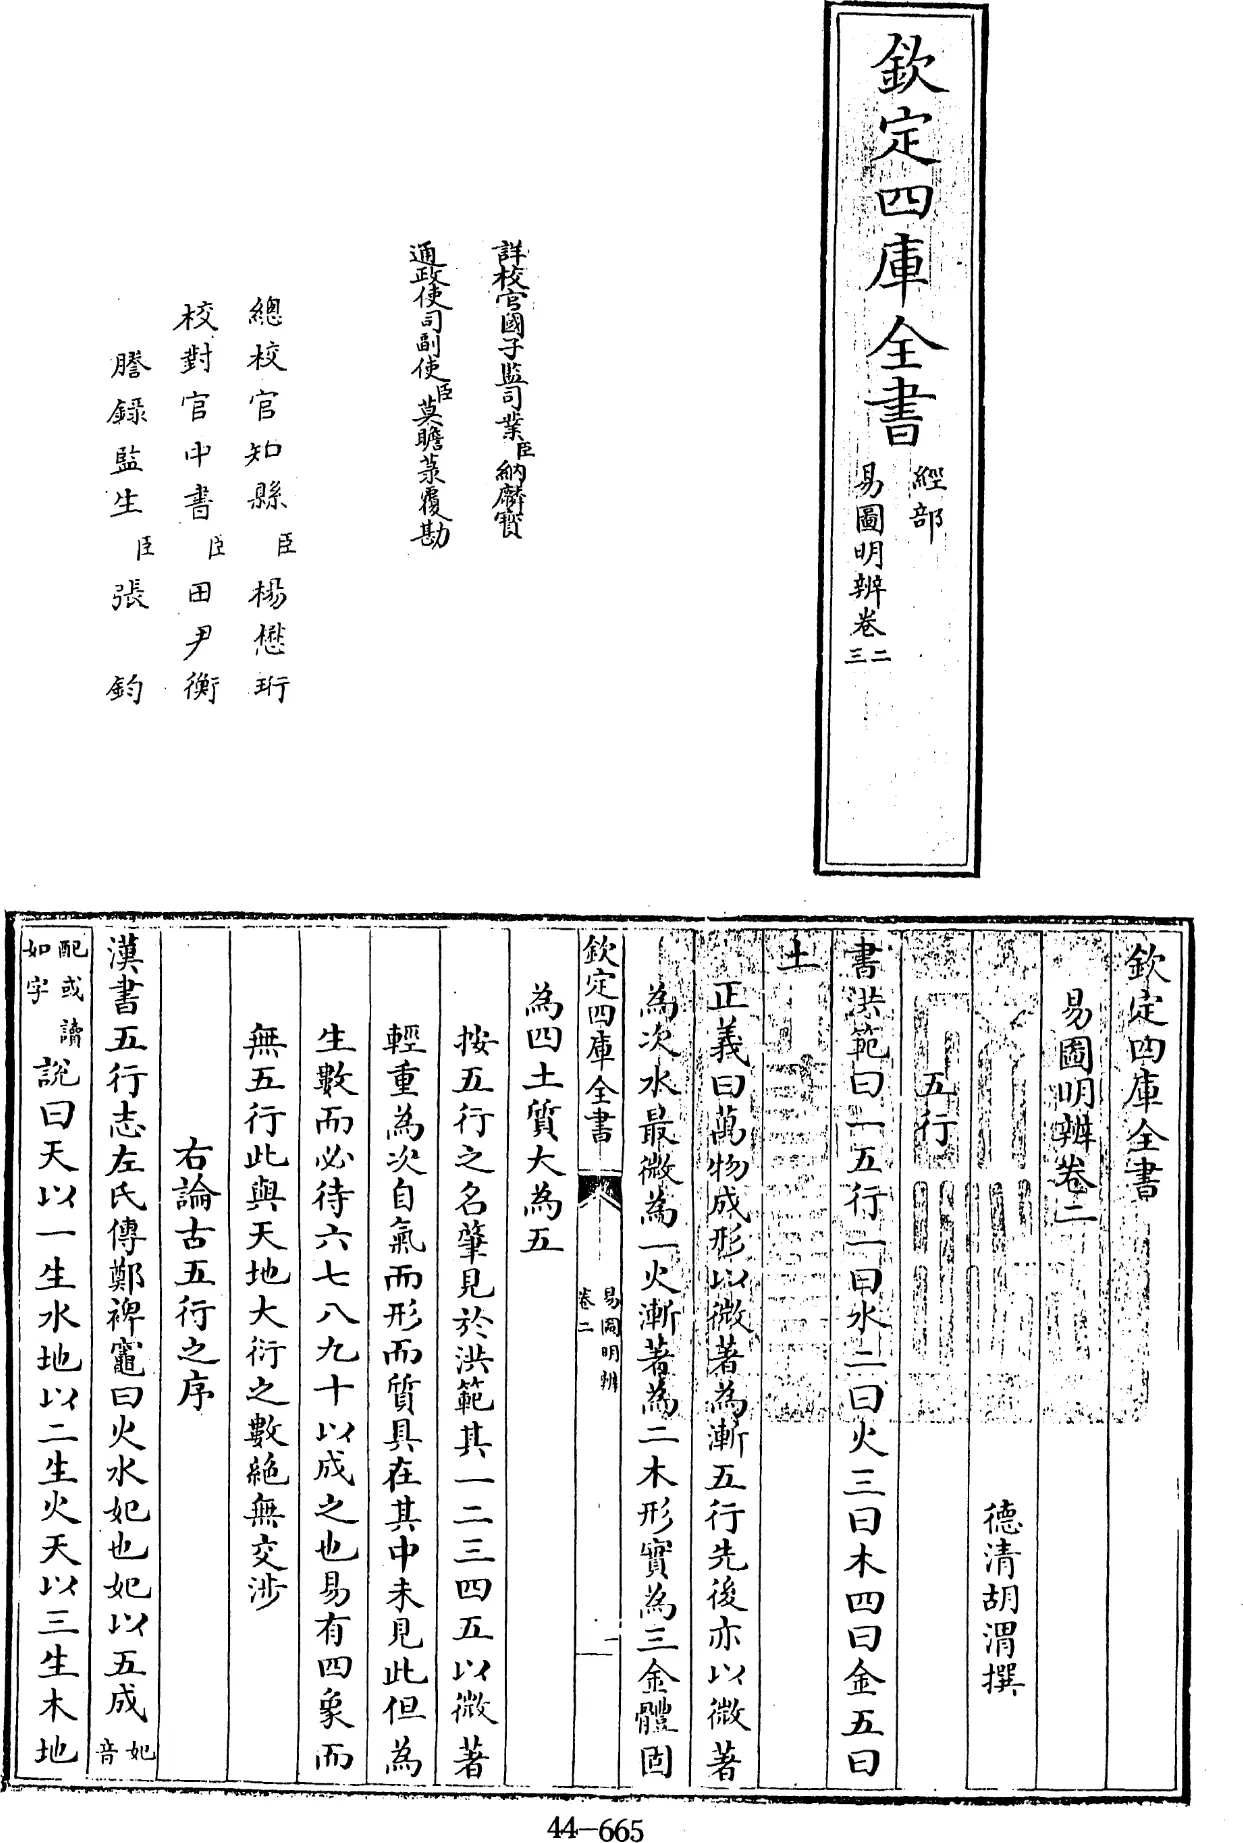 欽定四庫全書
經部
易圖明辨卷二三
詳校官國子監司業臣納麟寶
通政使司副使臣莫瞻菉覆勘
總校官知縣臣楊懋珩
校對官中書臣田尹衡
謄錄監生臣張鈞
欽定四庫全書
易圖明辨卷二
德清胡渭撰
五行
書洪範曰一五行一曰水二曰火三曰木四曰金五曰
土
正義曰萬物成形以微著為漸五行先後亦以微著
為次水最微為一火漸著為二木形實為三金體固
欽定四庫全書
易圖明辨
卷二
一
為四土質大為五
按五行之名肇見於洪範其一二三四五以微著
輕重為次自氣而形而質具在其中未見此但為
生數而必待六七八九十以成之也易有四象而
無五行此與天地大衍之數絶無交涉
右論古五行之序
漢書五行志左氏傳鄭裨竈曰火水妃也妃以五成妃音
配或讀如字說曰天以一生水地以二生火天以三生木地
44-665